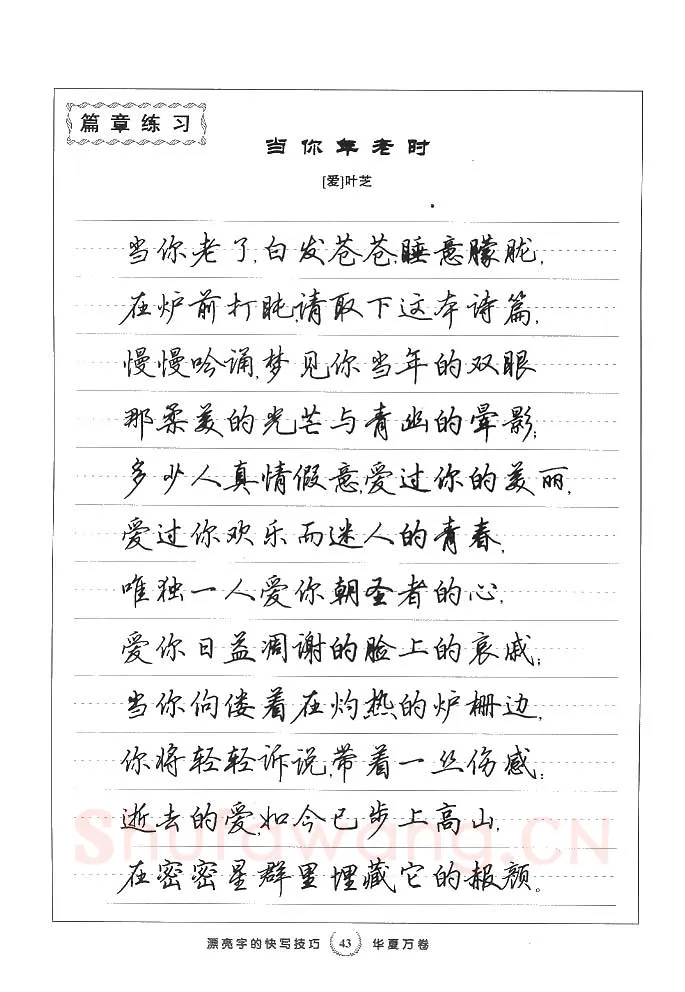 篇章练习
当你年老时
[爱]叶芝
当你老了,白发苍苍,睡意朦胧,
在炉前打盹,请取下这本诗篇,
慢慢吟诵,梦见你当年的双眼
那柔美的光芒与青幽的晕影;
多少人真情假意,爱过你的美丽,
爱过你欢乐而迷人的青春,
唯独一人爱你朝圣者的心,
爱你日益凋谢的脸上的哀戚;
当你佝偻着在灼热的炉栅边,
你将轻轻诉说,带着一丝伤感:
逝去的爱,如今已步上高山,
在密密星群里埋藏它的赧颜。
ShuFawang.CN
漂亮字的快写技巧 43 华夏万卷